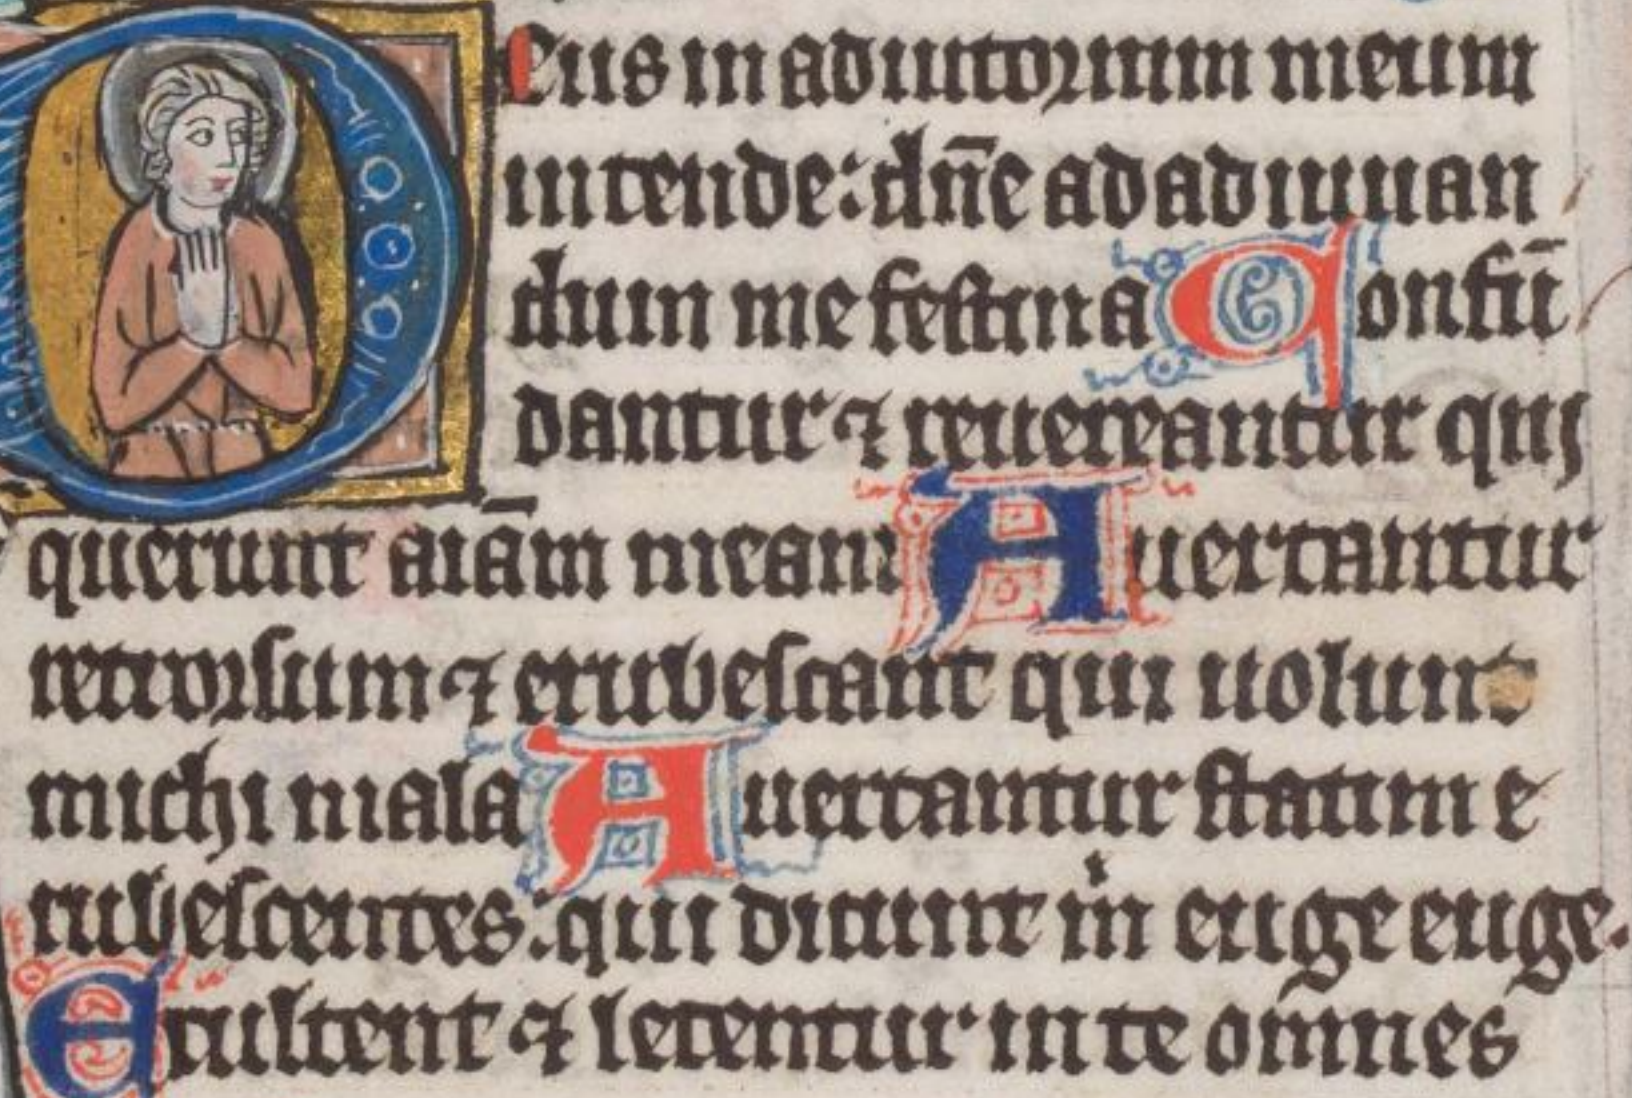 Deus in adiutorium meum
intende: dn̄e ad adiuuan
dum me festina Confū
dantur ⁊ reuereantur qui
querunt aīam meam Auertantur
retrorsum ⁊ erubescant qui uolunt
michi mala Auertantur statim e
rubescentes: qui dicunt m̍ euge euge.
Exultent ⁊ letentur in te om̄nes